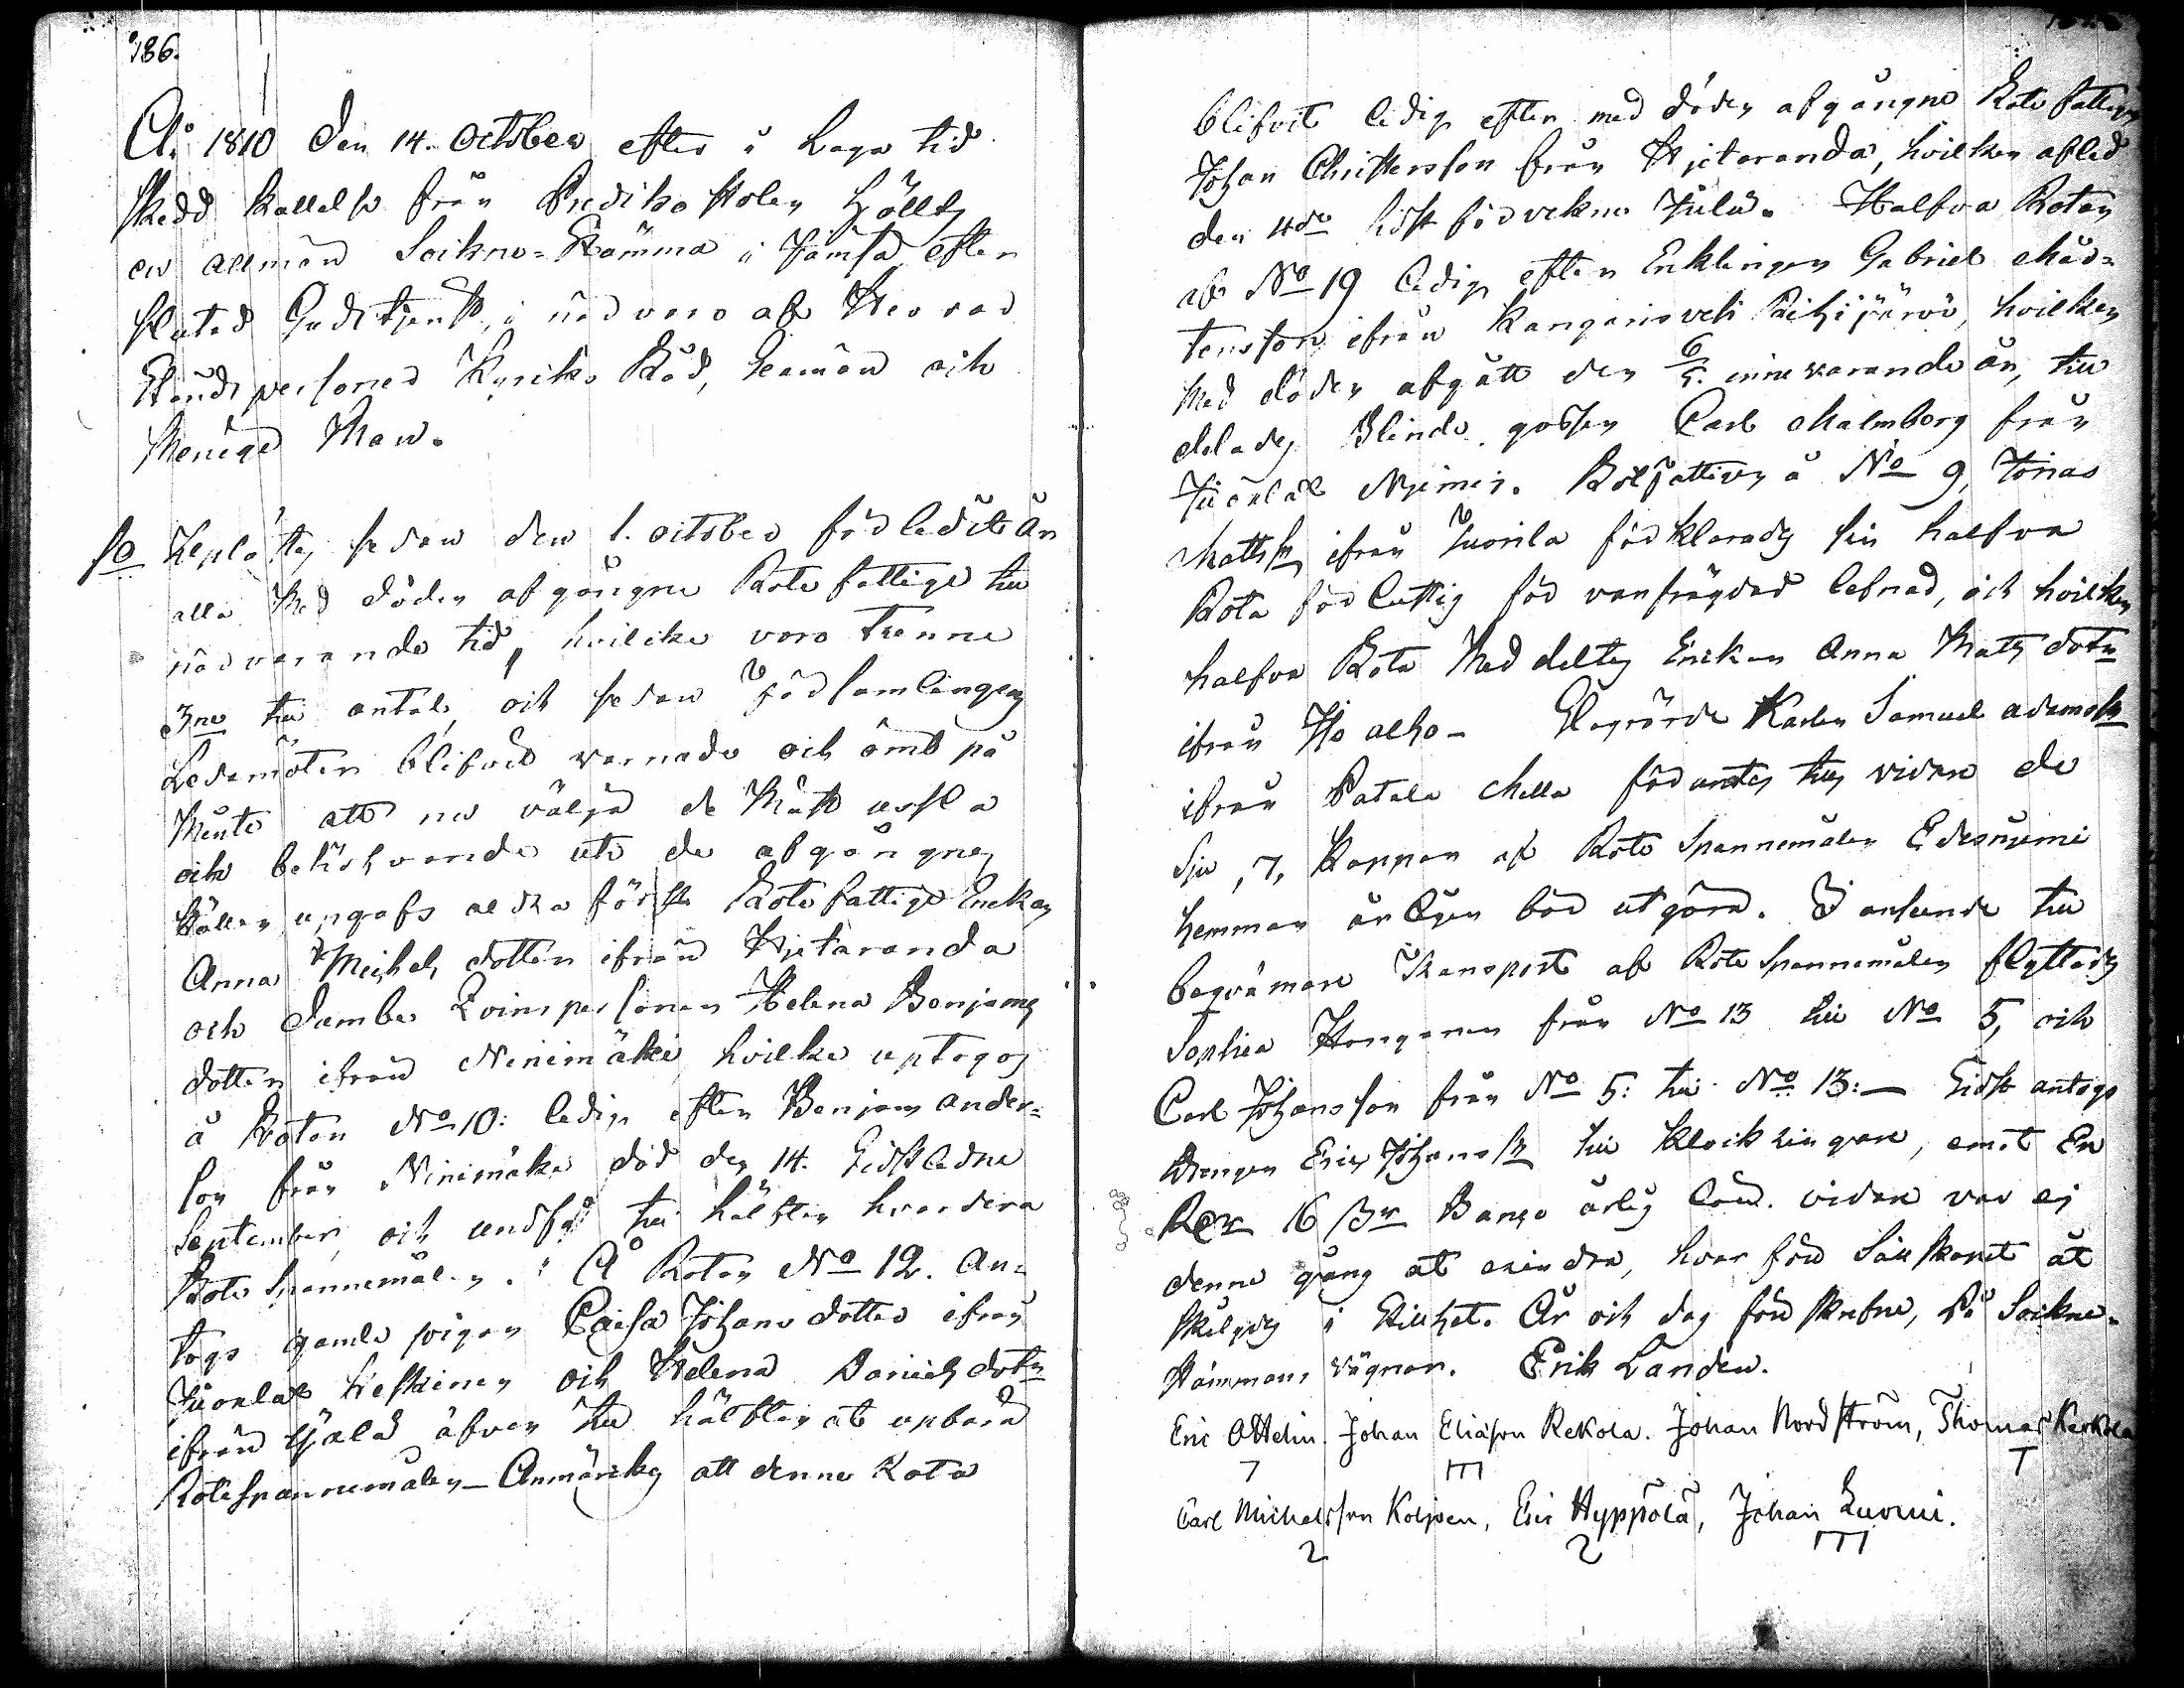 186.
Ao 1810 den 14. October efter i Laga tid
skedd kallelse från Prediko Stolen hölls
en allmän Sokne-Stämma i Jämsä efter
slutad Gudstjenst, i närvaro af Herrar
Ståndspersoner Kyrko Råd, Sexmän och
Menige Man.
so Uplästes sedan den 1. october förledit år
alla Med döden afgångne Rote fattige till
närvarande tid, hvilcka voro trenne
3ne till antal, och sedan församlingens
Ledamöter blifvit varnade och ömt på
Minte att nu välja de Mäst usla
och behöfvande uti de afgångnes
ställen, upgafs aldra först Rote fattige Enckan
Anna Michels dotter ifrån Hjetaranda
och dumba Qvinspersonen Helena Benjams
dotter ifrån Ninimäki, hvilka uptogos
å Roten No 10: ledig efter Benjam Anders-
son från Ninimäki död den 14. Sidstledne
September, och undfå till hälften hvardera
Rote Spannemålen. Å Roten No 12. An-
togs gamla pigan Caisa Johans dotter ifrån
Juorla Heskinen och Helena Daniels dotr
ifrån äfven till hälften at upbära
Rotespannemålen - Anmärktes att denne Rota
blifvit ledig efter med döden afgångne Rote fattigen
Johan Christersson från Hjetaranda, hvilken afled
den 4de sidst förvekne Julii. Halfva Roten
af No 19 ledig efter Enklingen Gabriel Mår-
tensson ifrån Kangarisvesi Pihjärvi, hvilken
Med döden afgått den 6/5. innevarande år, till
delades Blinde gossen Carl Malmborg från
Juorla Njemis. Rotfattigen å No 9, Jonas
Matts sn ifrån Juorila förklarades sin halfva
Rota förlustig för vanfrägdad lefnad, och hvilken
halfva Rota Med deltes Enkan Anna Mats dotr
ifrån Hoalho - Slagrörde Karlen Samuel Adams sn
ifrån Patala Mella förunntes tills vidare de
Sju, 7, kappar af Rote Spannemålen Edesnjemi
hemman årligen bör utgöra. I anseende till
beqvämare Transport af Rote Spannemålen flyttades
Sophia Honganen från No 13 till No 5, och
Carl Johansson från No 5: till No 13: - Sidst antogs
drengen Eric Johans sn till Klockringare, emot En
RDr 16 sr Banco årlig Lön. vidare var ej
denne gång at erindra, hvarföre Sällskapet åt
skildes i Stillhet. År och dag före skrefne, På Sockne-
Stämmans vägnar. Erik Landen.
Eric Ottelin. Johan Eliasson Rekola. Johan Nordström, Thomas Kerkola
Carl Michelsson Kolpen, Eric Hyppölä, Johan Luomi.